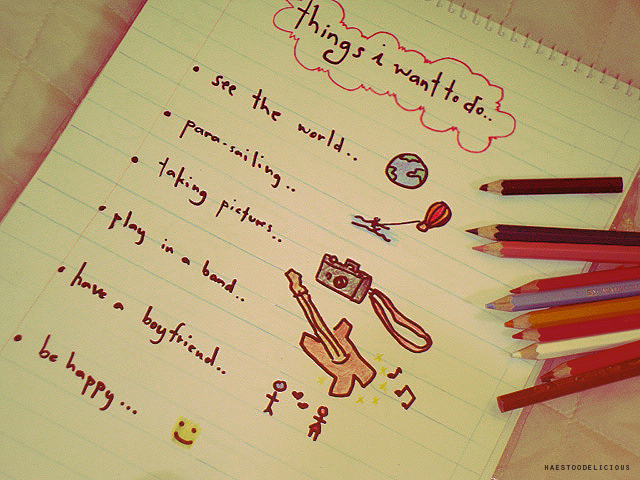 things i want to do..
• see the world..
• para-sailing..
• taking pictures..
• play in a band..
• have a boyfriend..
• be happy...
HAESTOODELICIOUS